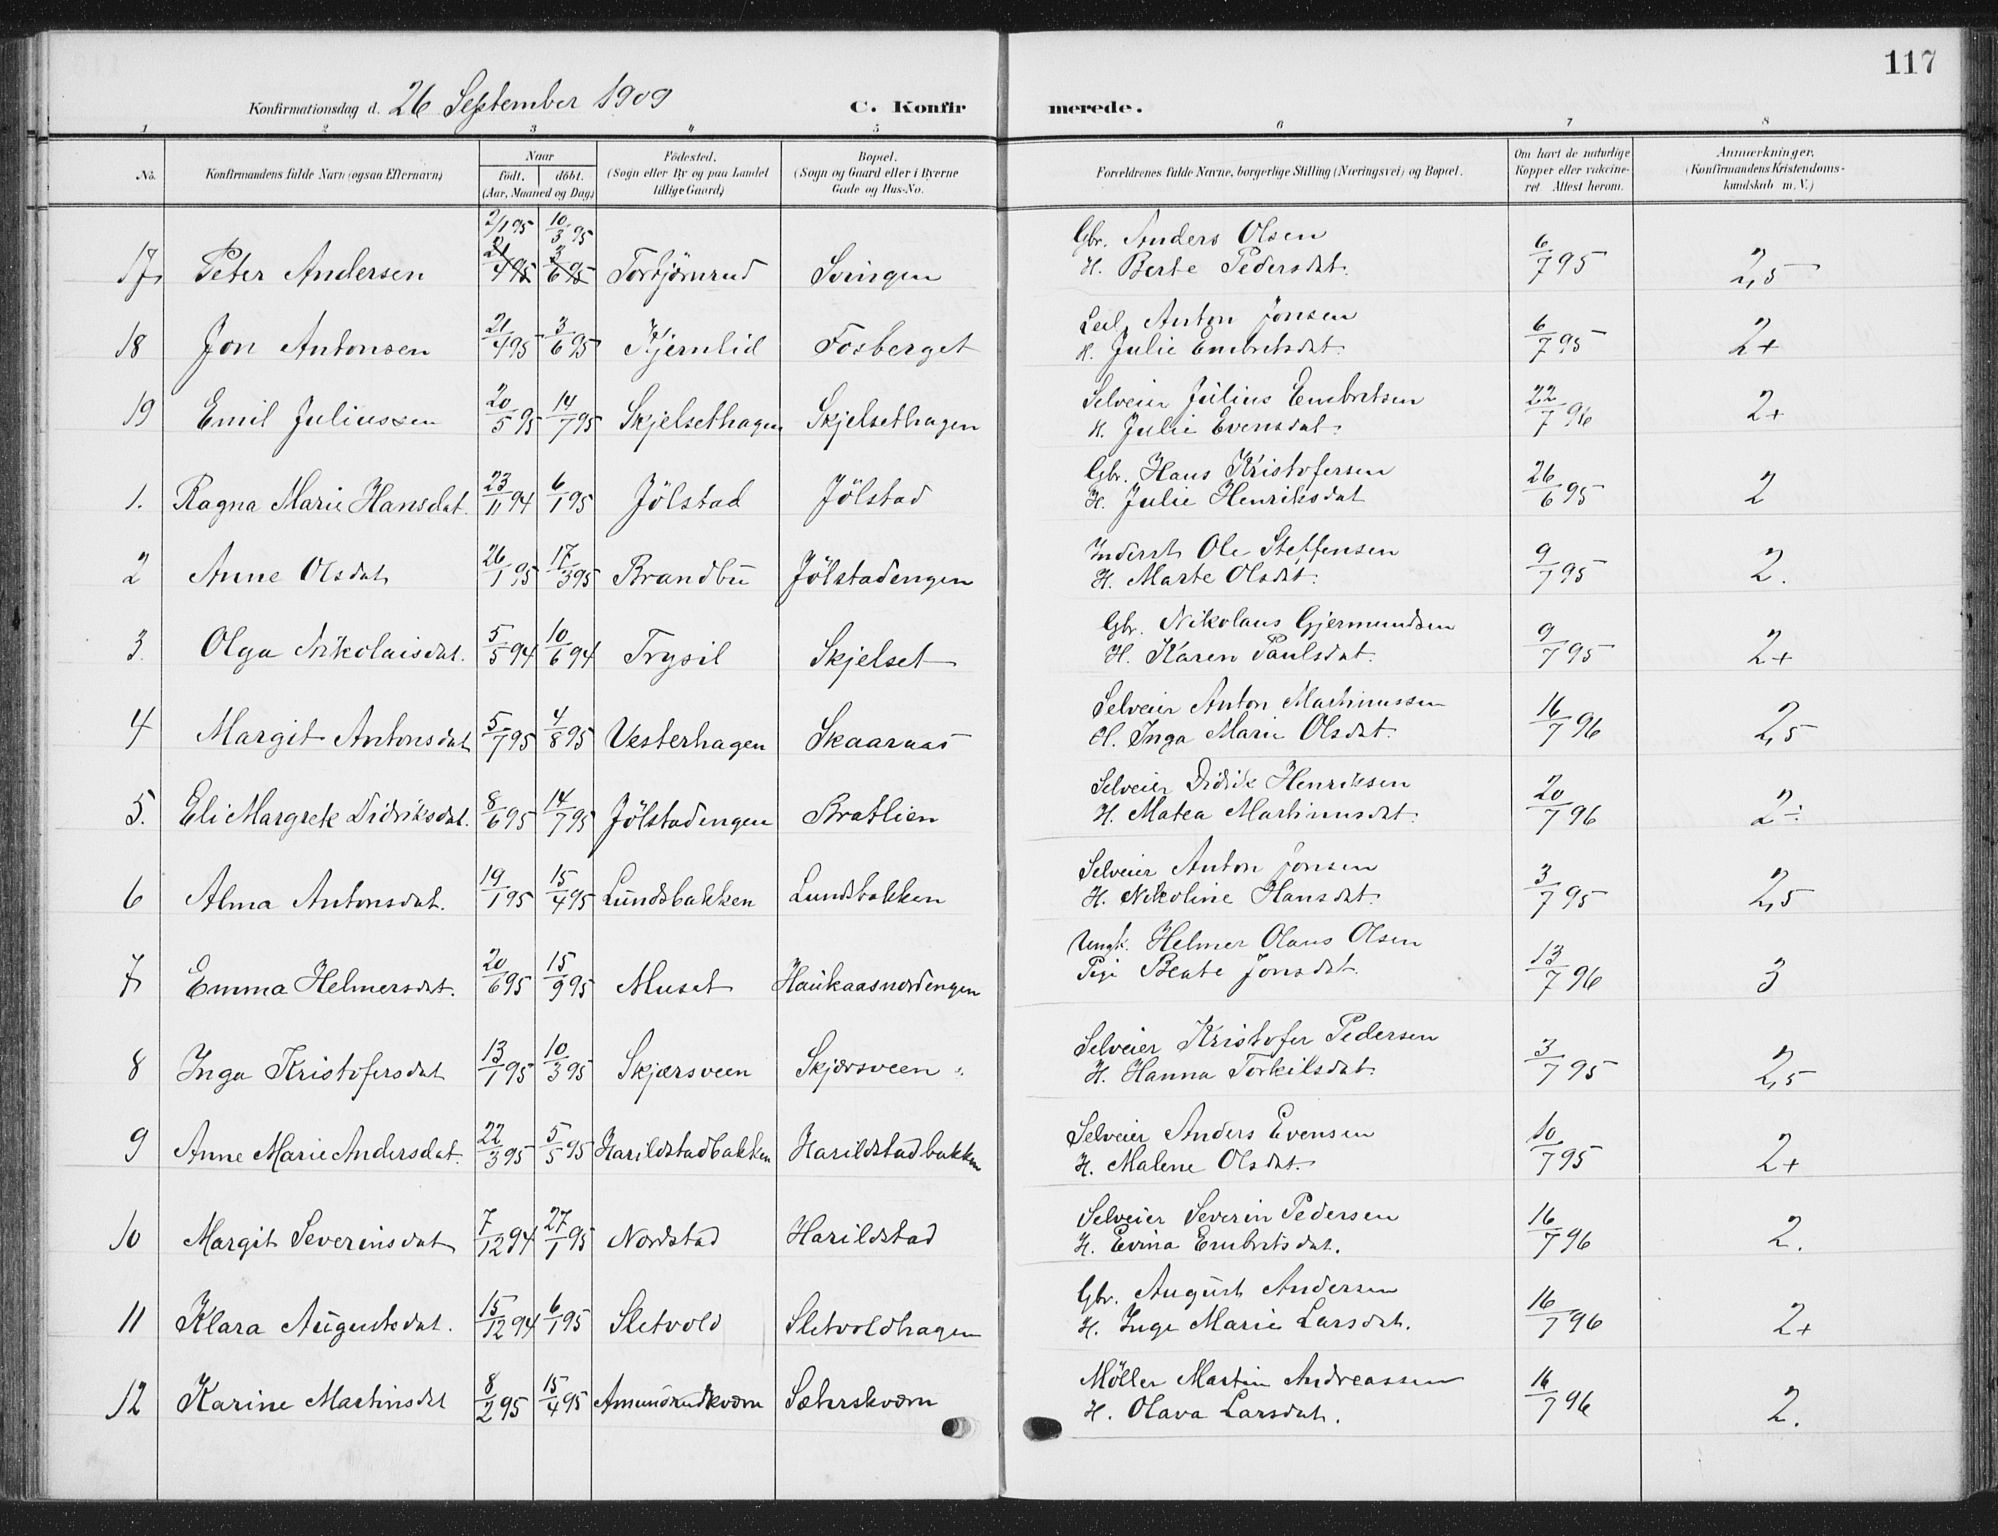 117
Konfirmationsdag d. 26 September 1909 C. Konfir merede.
1 2 3 4 5 6 7 8
No. Konfirmandens fulde Navn (ogsaa Efternavn) Naar født. døbt. (Aar, Maaned og Dag) Fødested. (Sogn eller By og paa Landet tillige Gaard) Bopæl. (Sogn og Gaard eller i Byerne Gade og Hus-No. Forældrenes fulde Navne, borgerlige Stilling (Næringsvei) og Bopæl. Om havt de naturlige Kopper eller vaccineret Attest herom. Anmærkninger, (Konfirmandens Kristendomskundskab m. V.)
2/1 95 10/3 95 Gbr. Anders Olsen
17, Peter Andersen 21/4 95 3/6 95 Torbjørnrud Svingen H. Berte Pedersdat. 6/7 95 2,5
Leil. Anton Jonsen
18 Jon Antonsen 21/4 95 3/6 95 Kjernlid Fosberget H. Julie Embretsdat. 6/7 95 2+
Selveier Julius Embretsen
19 Emil Juliussen 20/5 95 14/7 95 Skjelsethagen Skjelsethagen H. Julie Evensdat. 22/7 96 2+
Gbr. Hans Kristofersen
1. Ragna Marie Hansdat. 23/11 94 6/1 95 Jölstad Jölstad H. Julie Henriksdat 26/6 95 2
Inderst Ole Steffensen
2 Anne Olsdat 26/1 95 17/3 95 Brandbu Jölstadengen H. Marte Olsdat. 9/7 95 2.
Gbr. Nikolaus Gjermundsen
3. Olga Nikolaisdat. 5/5 94 10/6 94 Trysil Skjelset H. Karen Paulsdat. 9/7 95 2+
Selveier Anton Martinussen
4 Margit Antonsdat 5/7 95 4/8 95 Vesterhagen Skaaraas H. Inga Marie Olsdat. 16/7 96 2,5
Selveier Didrik Henriksen
5. Eli Margrete Didriksdat. 8/6 95 14/7 95 Jölstadengen Bratlien H. Matea Martinusdat. 20/7 96 2÷
Selveier Anton Jonsen
6 Alma Antonsdat. 19/1 95 15/4 95 Lundsbakken Lundsbakken H. Nikoline Hansdat. 3/7 95 2,5
Ungk. Helmer Olaus Olsen
7, Emma Helmersdat. 20/6 95 15/9 95 Muset Haukaasnordengen Pige Beate Jonsdat. 13/7 96 3
Selveier Kristofer Pedersen
8 Inga Kristofersdat 13/1 95 10/3 95 Skjærsveen Skjærsveen H. Hanna Torkilsdat. 3/7 95 2,5
Selveier Anders Evensen
9 Anne Marie Andersdat. 22/3 95 5/5 95 Harildstadbakken Harildstadbakken H. Malene Olsdat. 10/7 95 2+
Selveier Severin Pedersen
10 Margit Severinsdat 7/12 94 27/1 95 Nordstad Harildstad H. Evina Embretsdat. 16/7 96 2.
Gbr. August Andersen
11 Klara Augustsdat. 15/12 94 6/1 95 Sletvold Sletvoldhagen H. Inge Marie Larsdat. 16/7 96 2+
Möller Martin Andreassen
12 Karine Martinsdat 8/2 95 15/4 95 Amundrudkværn Sæterskværn H. Olava Larsdat. 16/7 96 2.